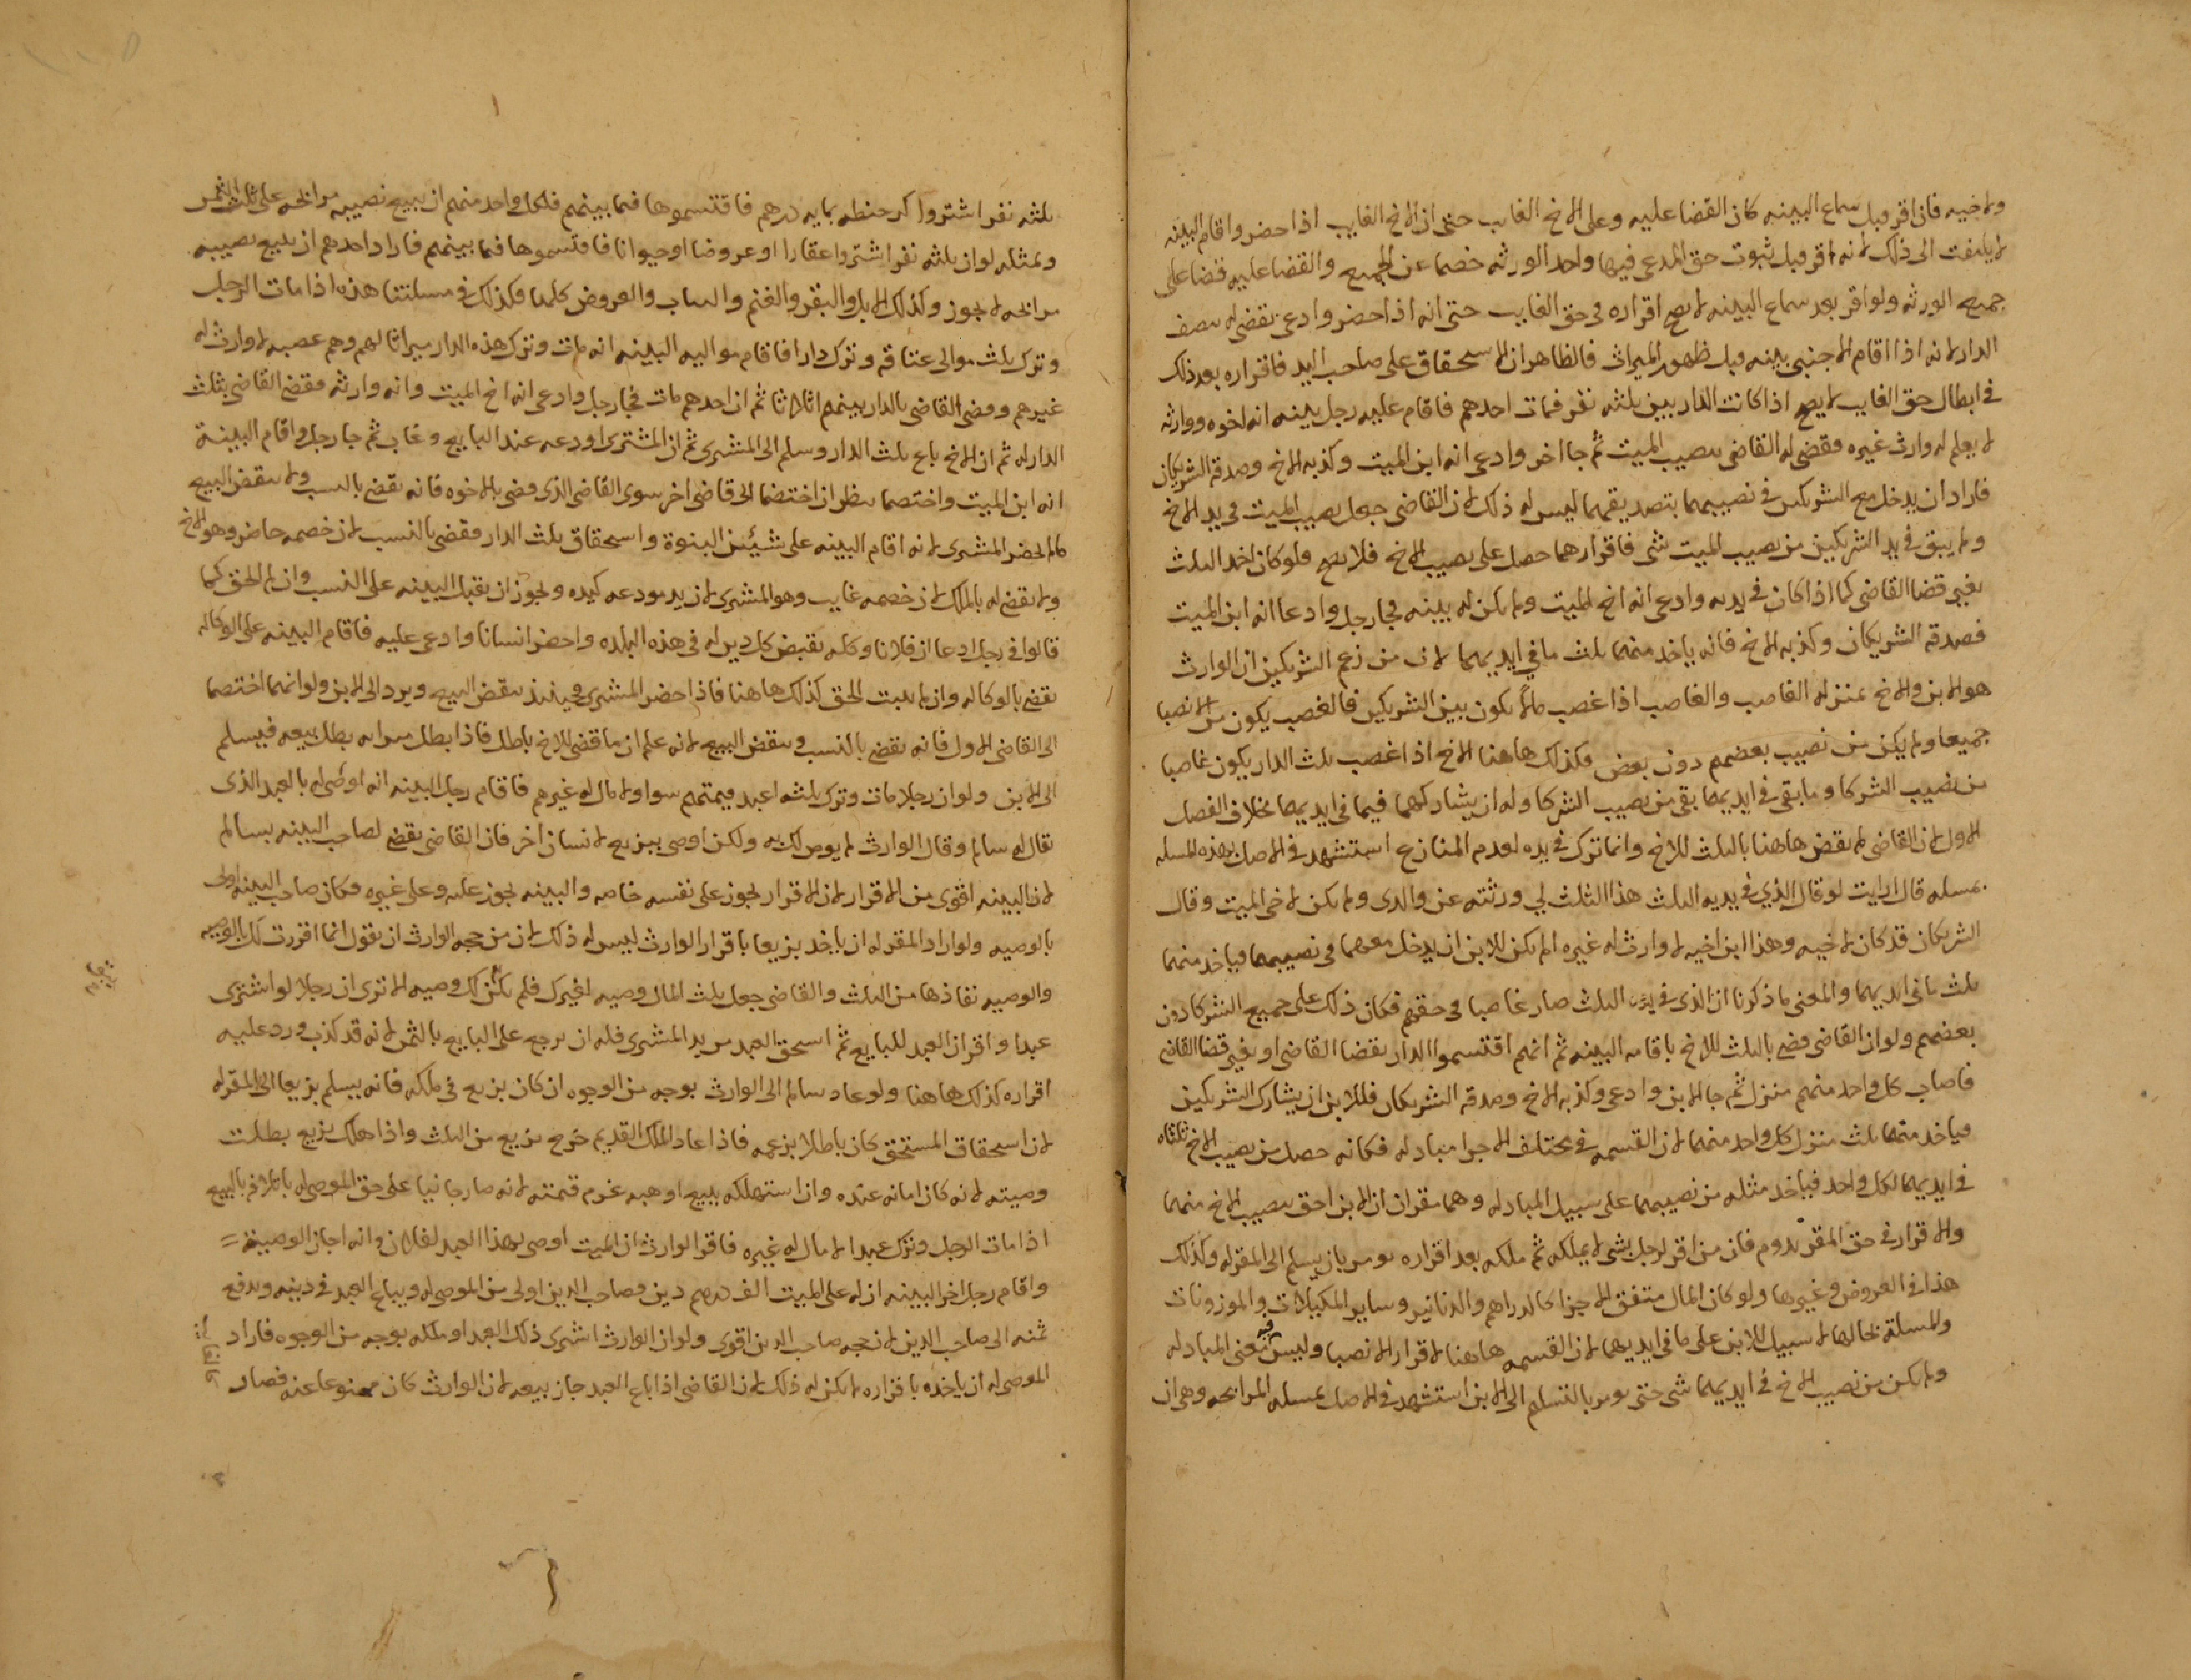 ولاخيه فان اقر قبل سماع البينه كان القضا عليه وعلى الاخ الغايب حتى ان الاخ الغايب اذا حضر واقام البينه
لا يلتفت الى ذلك لانه اقر قبل ثبوت حق المدعى فيها واحد الورثه خصما عن الجميع والقضا عليه قضا على
جميع الورثه ولو اقر بعد سماع البينه لا يصح اقراره فى حق الغايب حتى انه اذا حضر وادعى يقضى له بنصف
الدار لانه اذا اقام الاجنبى بينه قبل ظهور الميراث فالظاهر ان الاستحقاق على صاحب اليد فاقراره بعد ذلك
فى ابطال حق الغايب لا يصح اذا كانت الدار بين ثلثه نفر فمات احدهم فاقام عليه رجل بينه انه اخوه ووارثه
لا يعلم له وارث غيره فقضى له القاضى بنصيب الميت ثم جا اخر وادعى انه ابن الميت وكذبه الاخ وصدقه الشريكان
فاراد ان يدخل مع الشريكين فى نصيبهما بتصديقهما ليس له ذلك لان القاضى جعل نصيب الميت فى يد الاخ
ولم يبق فى يد الشريكين من نصيب الميت شى فاقرارهما حصل على نصيب الاخ فلا يصح ولو كان اخذ الثلث
بغير قضا القاضى كما اذا كان فى يديه وادعى انه اخ الميت ولم يكن له بينه فجا رجل وادعا انه ابن الميت
فصدقه الشريكان وكذبه الاخ فانه ياخد منهما ثلث ما فى ايديهما لان من زعم الشريكين ان الوارث
هو الابن والاخ بمنزله الغاصب والغاصب اذا غصب مالا يكون بين الشريكين فالغصب يكون من الانصبا
جميعا ولم يكن من نصيب بعضهم دون بعض فكذلك هاهنا الاخ اذا غصب ثلث الدار يكون غاصبا
من نصيب الشركا وما بقى فى ايديهما بقى من نصيب الشركا وله ان يشاركهما فيما فى ايديهما بخلاف الفصل
الاول لان القاضى لم يقض هاهنا بالثلث للاخ وانما ترك فى يده لعدم المنازع استشهد فى الاصل بهذه المسله
بمسله قال ارايت لو قال الذي فى يديه الثلث هذا الثلث لي ورثته عن والدى ولم يكن لاخى الميت وقال
الشريكان قد كان لاخيه وهذا ابن اخيه لا وارث له غيره الم يكن للابن ان يدخل معهما فى نصيبهما فياخد منهما
ثلث ما فى ايديهما والمعنى ما ذكرنا ان الذى فى يديه الثلث صار غاصبا فى حقهم فكان ذلك على جميع الشركا دون
بعضهم ولو ان القاضى قضى بالثلث للاخ باقامه البينه ثم انهم اقتسموا الدار بقضا القاضى او بغير قضا القاضى
فاصاب كل واحد منهم منزل ثم جا الابن وادعى وكذبه الاخ وصدقه الشريكان فللابن ان يشارك الشريكين
فياخد منهما ثلث منزل كل واحد منهما لان القسمه فى مختلف الاجزا مبادله فكانه حصل من نصيب الاخ ثلثاه
فى ايديهما لكل واحد فياخد مثله من نصيبهما على سبيل المبادله وهما مقران ان الابن احق بنصيب الاخ منهما
والاقرار فى حق المقر يدوم فان من اقر لرجل بشى لا يملكه ثم ملكه بعد اقراره يومر بان يسلم الى المقر له وكذلك
هذا فى العروض وغيرها ولو كان المال متفق الاجزا كالدراهم والدنانير وساير المكيلات والموزونات
والمسلة بحالها لا سبيل للابن على ما فى ايديهما لان القسمه هاهنا لاقرار الانصبا وليس فيه معنى المبادله
ولم يكن من نصيب الاخ فى ايديهما شى حتى يومر بالتسليم الى الابن استشهد فى الاصل بمسله المرابحه وهى ان
ثلثه نفر اشتروا كر حنطه بمايه درهم فاقتسموها فيما بينهم فلكل واحد منهم ان يبيع نصيبه مرابحه على ثلث الثمن
وبمثله لو ان ثلثه نفر اشتروا عقارا او عروضا او حيوانا فاقتسموها فيما بينهم فاراد احدهم ان يبيع نصيبه
مرابحه لا يجوز وكذلك الابل والبقر والغنم والثياب والعروض كلها فكذلك فى مسلتنا هذه اذا مات الرجل
وترك ثلث موالى عتاقه وترك دارا فاقام مواليه البينه انه مات وترك هذه الدار ميراثا لهم وهم عصبه لا وارث له
غيرهم وقضى القاضى بالدار بينهم اثلاثا ثم ان احدهم مات فجا رجل وادعى انه اخ الميت وانه وارثه فقضى القاضى بثلث
الدار له ثم ان الاخ باع ثلث الدار وسلم الى المشترى ثم ان المشترى اودعه عند البايع وغاب ثم جا رجل واقام البينة
انه ابن الميت واختصما ينظر ان اختصما الى قاضى اخر سوى القاضى الذى قضى بالاخوه فانه يقضى بالنسب ولا ينقض البيع
ما لم يحضر المشترى لانه اقام البينه على شيئين البنوة واستحقاق ثلث الدار فقضى بالنسب لان خصمه حاضر وهو الاخ
ولا يقضى له بالملك لان خصمه غايب وهو المشترى لان يد مودعه كيده ويجوز ان يقبل البينه على النسب وان لم الحق كما
قالوا فى رجل ادعا ان فلانا وكله بقبض كل دين له فى هذه البلده واحضر انسانا وادعى عليه فاقام البينه على الوكاله
يقضى بالوكاله وان لم يثبت الحق كذلك هاهنا فاذا حضر المشترى فحينئذ ينقض البيع ويرد الى الابن ولو انهما اختصما
الى القاضى الاول فانه يقضى بالنسب وينقض البيع لانه علم ان ما قضى للاخ باطل فاذا بطل ميراثه بطل بيعه فيسلم
الى الابن ولو ان رجلا مات وترك ثلثه اعبد قيمتهم سوا ولا مال له غيرهم فاقام رجل البينه انه اوصى له بالعبد الذى
يقال له سالم وقال الوارث لم يوص لك به ولكن اوصى ببزيع لانسان اخر فان القاضى يقضى لصاحب البينه بسالم
لان البينه اقوى من الاقرار لان الاقرار يجوز على نفسه خاصه والبينه يجوز عليه وعلى غيره فكان صاحب البينه اولى
بالوصيه ولو اراد المقر له ان ياخد بزيعا باقرار الوارث ليس له ذلك لان من حجه الوارث ان يقول انما اقررت لك بالوصيه
والوصيه نفاذها من الثلث والقاضى جعل ثلث المال وصيه لغيرك فلم يكن لك وصيه الا ترى ان رجلا لو اشترى
عبدا واقر ان العبد للبايع ثم استحق العبد من يد المشترى فله ان يرجع على البايع بالثمن لانه قد كذب ورد عليه
اقراره كذلك هاهنا ولو عاد سالم الى الوارث بوجه من الوجوه ان كان بزيع فى ملكه فانه يسلم بزيعا الى المقر له
لان استحقاق المستحق كان باطلا بزعمه فاذا عاد الملك القديم خرج بزيع من الثلث واذا هلك بزيع بطلت
وصيته لانه كان امانه عنده وان استهلكه ببيع او هبه غرم قيمته لانه صار جانيا على حق الموصى له باتلافه بالبيع
اذا مات الرجل وترك عبدا لا مال له غيره فاقر الوارث ان الميت اوصى بهذا العبد لفلان وانه اجاز الوصية =
واقام رجل اخر البينه ان له على الميت الف درهم دين فصاحب الدين اولى من الموصى له ويباع العبد فى دينه ويدفع
ثمنه الى صاحب الدين لان حجه صاحب الدين اقوى ولو ان الوارث اشترى ذلك العبد او ملكه بوجه من الوجوه فاراد
الموصى له ان ياخذه باقراره لم يكن له ذلك لان القاضى اذا باع العبد جاز بيعه لان الوارث كان ممنوعا عنه فصار